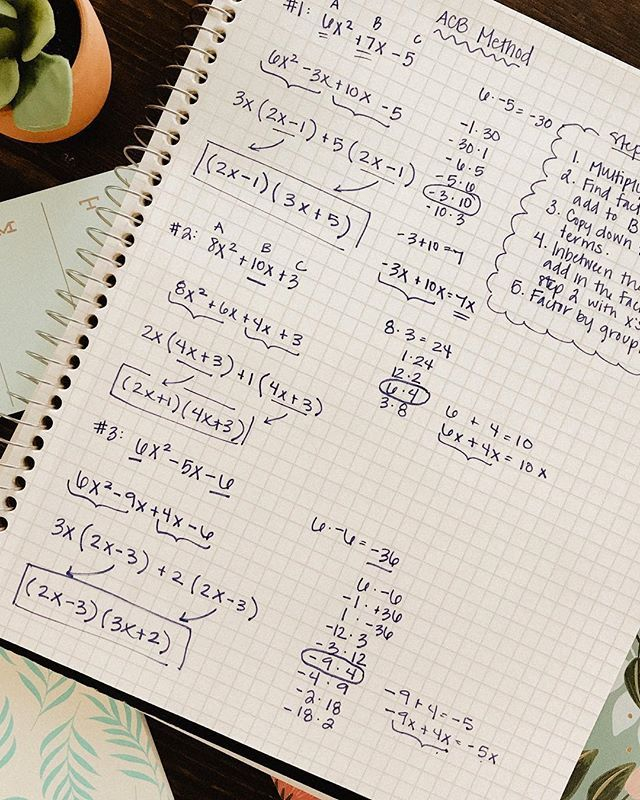 ACB Method
#1: 6x² + 7x - 5
A B C
6x² - 3x + 10x - 5
3x(2x-1) + 5(2x-1)
(2x-1)(3x+5)
6 · -5 = -30
-1 · 30
-30 · 1
-6 · 5
-5 · 6
-3 · 10
-10 · 3
-3 + 10 = 7
-3x + 10x = 7x
Step
1. Multipl
2. Find fac
add to B
3. Copy down
terms.
4. Inbetween th
add in the fac
step 2 with x's
5. Factor by group
#2: 8x² + 10x + 3
A B C
8x² + 6x + 4x + 3
2x(4x+3) + 1(4x+3)
(2x+1)(4x+3)
8 · 3 = 24
1 · 24
12 · 2
6 · 4
3 · 8
6 + 4 = 10
6x + 4x = 10x
#3: 6x² - 5x - 6
6x² - 9x + 4x - 6
3x(2x-3) + 2(2x-3)
(2x-3)(3x+2)
6 · -6 = -36
6 · -6
-1 · +36
1 · -36
-12 · 3
-3 · 12
-9 · 4
-4 · 9
-2 · 18
-18 · 2
-9 + 4 = -5
-9x + 4x = -5x
H
M